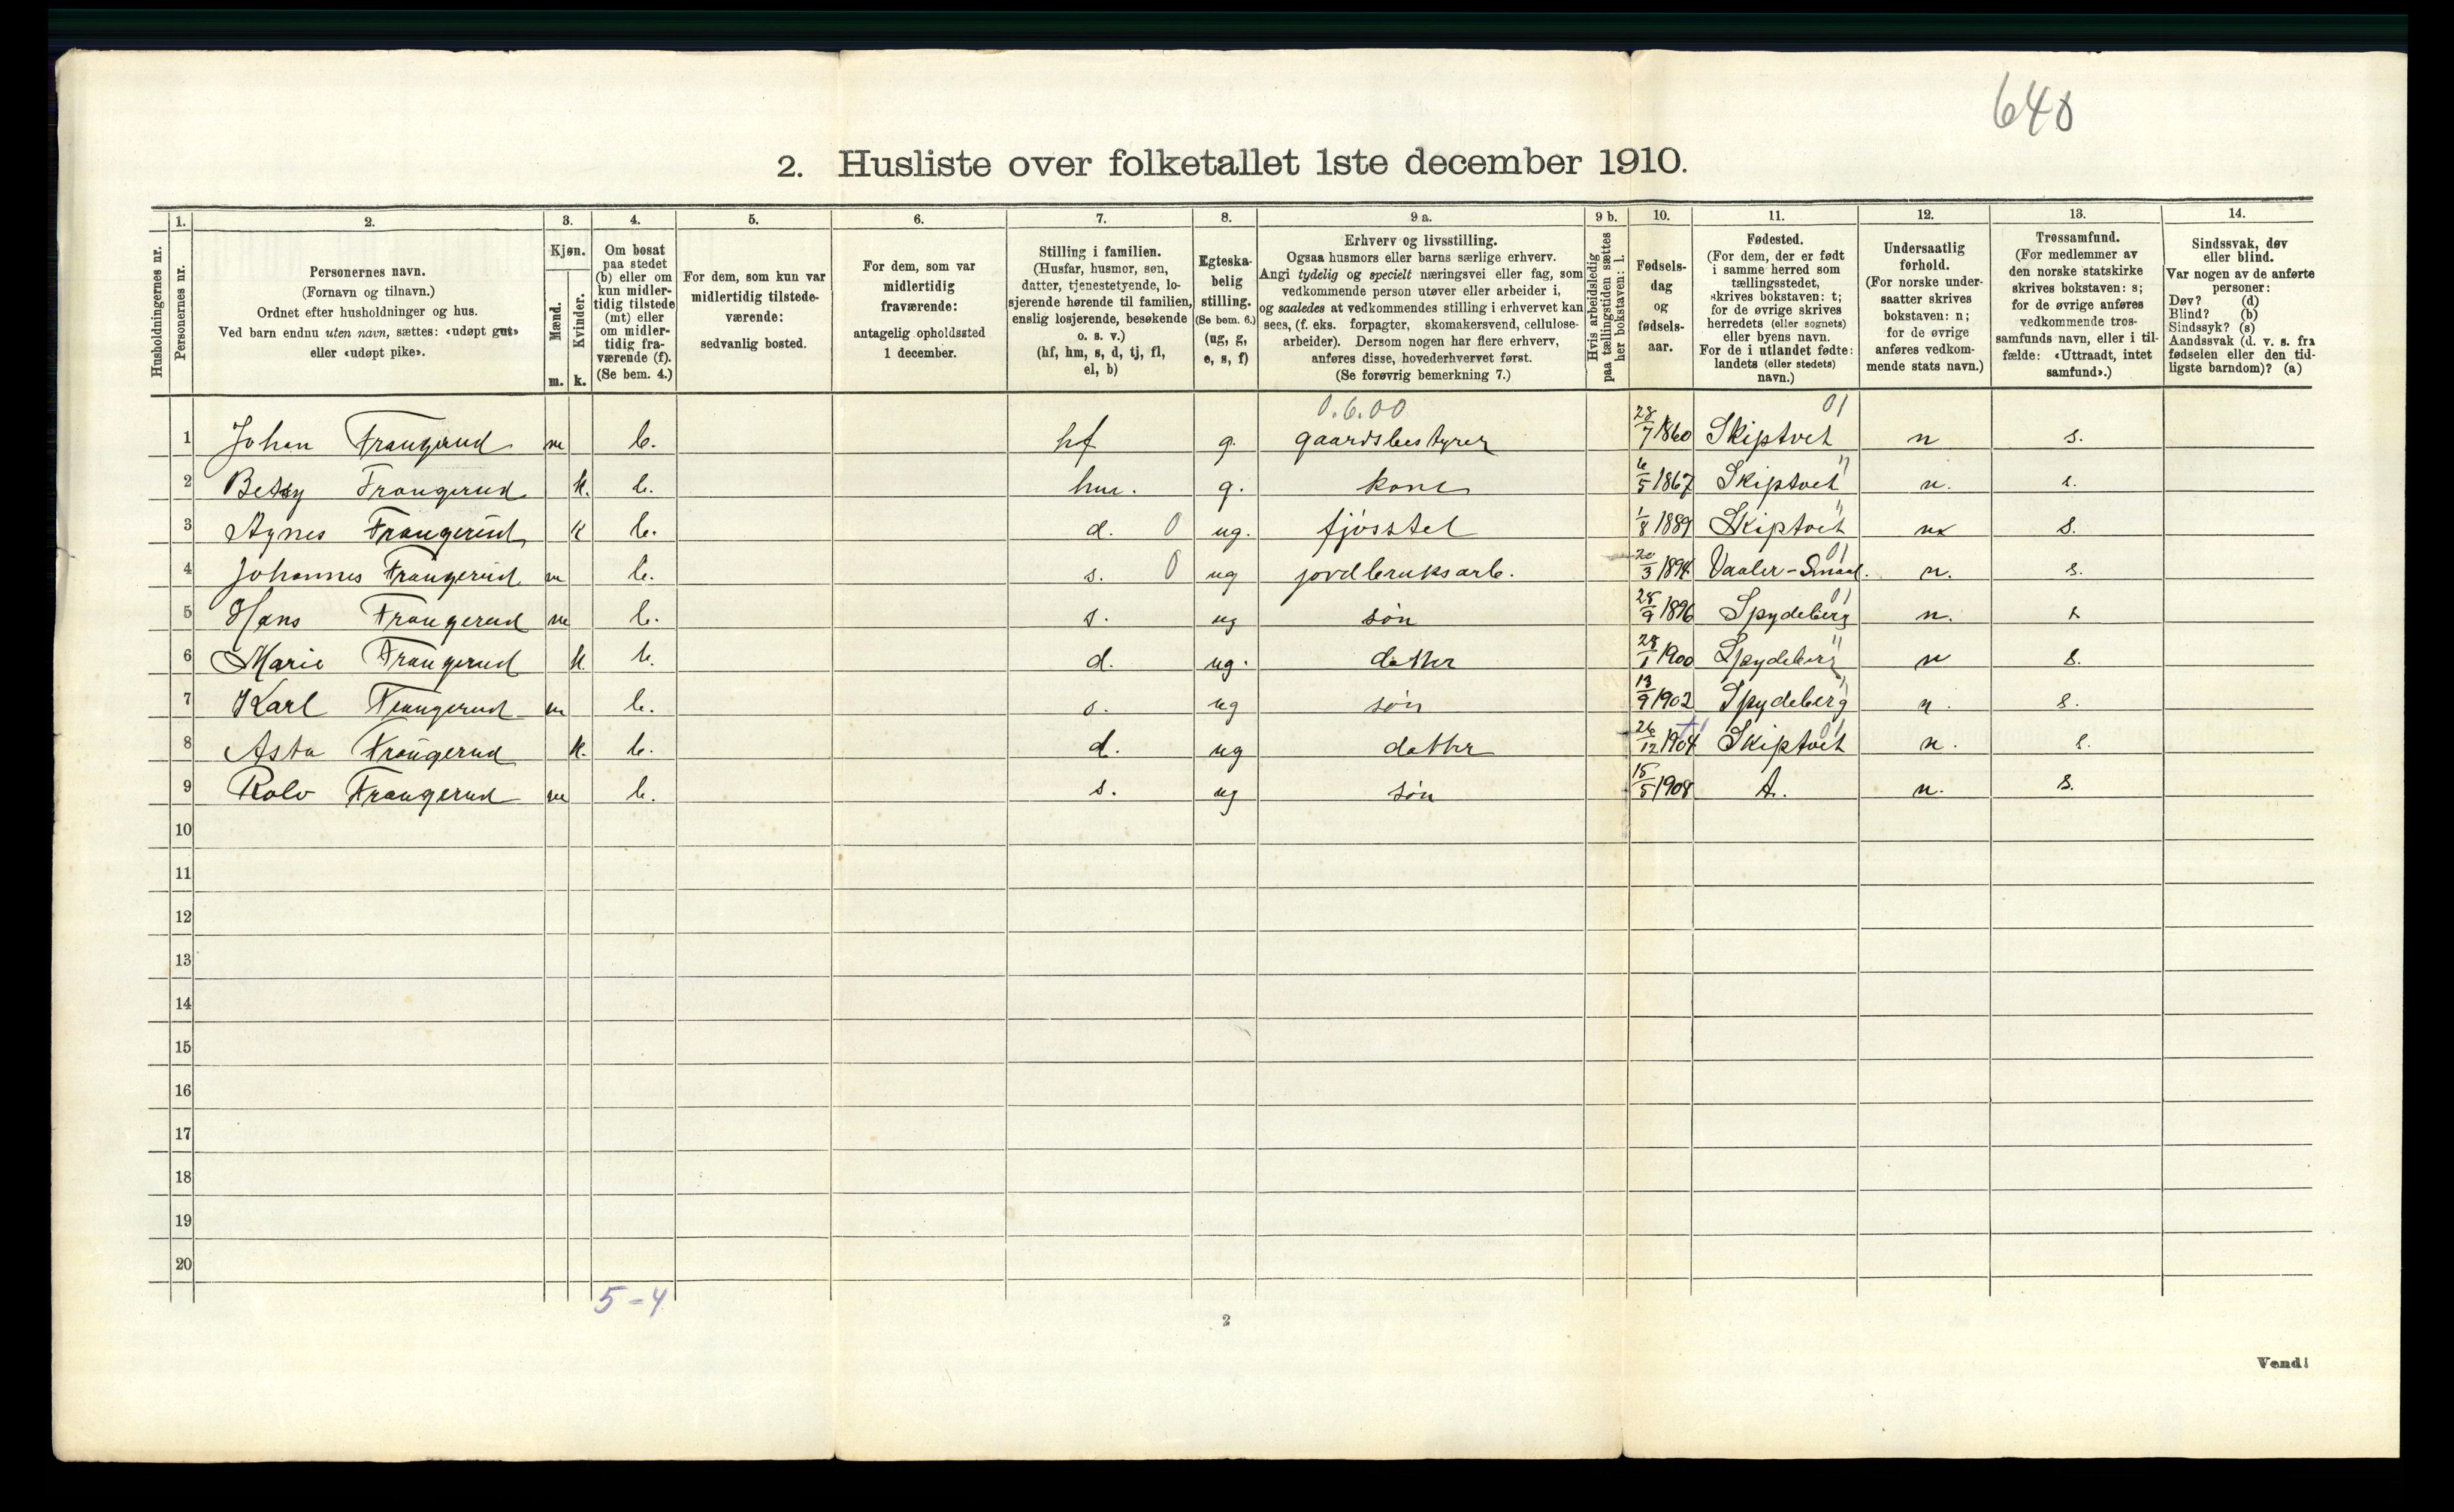 640
2. Husliste over folketallet 1ste december 1910.
1. 2. 3. 4. 5. 6. 7. 8. 9 a. 9 b. 10. 11. 12. 13. 14.
Husholdningernes nr.
Personernes nr.
Personernes navn.
(Fornavn og tilnavn.)
Ordnet efter husholdninger og hus.
Ved barn endnu uten navn, sættes: «udøpt gut»
eller «udøpt pike».
Kjøn.
Mænd.
Kvinder.
m. k.
Om bosat
paa stedet
(b) eller om
kun midler-
tidig tilstede
(mt) eller
om midler-
tidig fra-
værende (f).
(Se bem. 4.)
For dem, som kun var
midlertidig tilstede-
værende:
sedvanlig bosted.
For dem, som var
midlertidig
fraværende:
antagelig opholdssted
1 december.
Stilling i familien.
(Husfar, husmor, søn,
datter, tjenestetyende, lo-
sjerende hørende til familien,
enslig losjerende, besøkende
o. s. v.)
(hf, hm, s, d, tj, fl,
el, b)
Egteska-
belig
stilling.
(Se bem. 6.)
(ug, g,
e, s, f)
Erhverv og livsstilling.
Ogsaa husmors eller barns særlige erhverv.
Angi tydelig og specielt næringsvei eller fag, som
vedkommende person utøver eller arbeider i,
og saaledes at vedkommendes stilling i erhvervet kan
sees, (f. eks. forpagter, skomakersvend, cellulose-
arbeider). Dersom nogen har flere erhverv,
anføres disse, hovederhvervet først.
(Se forøvrig bemerkning 7.)
Hvis arbeidsledig
paa tællingstiden sættes
her bokstaven: l.
Fødsels-
dag
og
fødsels-
aar.
Fødested.
(For dem, der er født
i samme herred som
tællingsstedet,
skrives bokstaven: t;
for de øvrige skrives
herredets (eller sognets)
eller byens navn.
For de i utlandet fødte:
landets (eller stedets)
navn.)
Undersaatlig
forhold.
(For norske under-
saatter skrives
bokstaven: n;
for de øvrige
anføres vedkom-
mende stats navn.)
Trossamfund.
(For medlemmer av
den norske statskirke
skrives bokstaven: s;
for de øvrige anføres
vedkommende tros-
samfunds navn, eller i til-
fælde: «Uttraadt, intet
samfund».)
Sindssvak, døv
eller blind.
Var nogen av de anførte
personer:
Døv? (d)
Blind? (b)
Sindssyk? (s)
Aandssvak (d. v. s. fra
fødselen eller den tid-
ligste barndom)? (a)
0.6.00 01
1 Johan Frangerud m b. hf g. gaardsbestyrer 28/7 1860 Skiptvet n s.
2 Betsy Frangerud k. b. hm. g. kone 6/5 1867 Skiptvet " n. s.
3 Agnes Frangerud k b. d. 0 ug. fjøsstel 1/8 1889 Skiptvet " n s.
4 Johannes Frangerud m b. s. 0 ug jordbruksarb. 20/3 1894 Vaaler-Smaal. 01 n. s.
5 Hans Frangerud m b. s. ug søn 28/9 1896 Spydeberg 01 n. s
6 Marie Frangerud k. b. d. ug. datter 28/1 1900 Spydeberg " n s.
7 Karl Frangerud m b. s. ug søn 13/9 1902 Spydeberg " n. s.
8 Asta Frangerud k. b. d. ug datter 26/12 1904 Skiptvet 01 n. s.
9 Rolv Frangerud m b. s. ug søn 15/5 1908 t. n. s.
10
11
12
13
14
15
16
17
18
19
20
5-4
2
Vend!